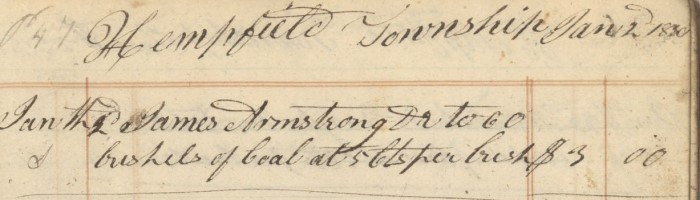 47 Hempfield Township Jan 2d 1830
Jan th 2d James Armstrong Dr to 60
bushels of Coal at 5 Cts per bush $ 3 00